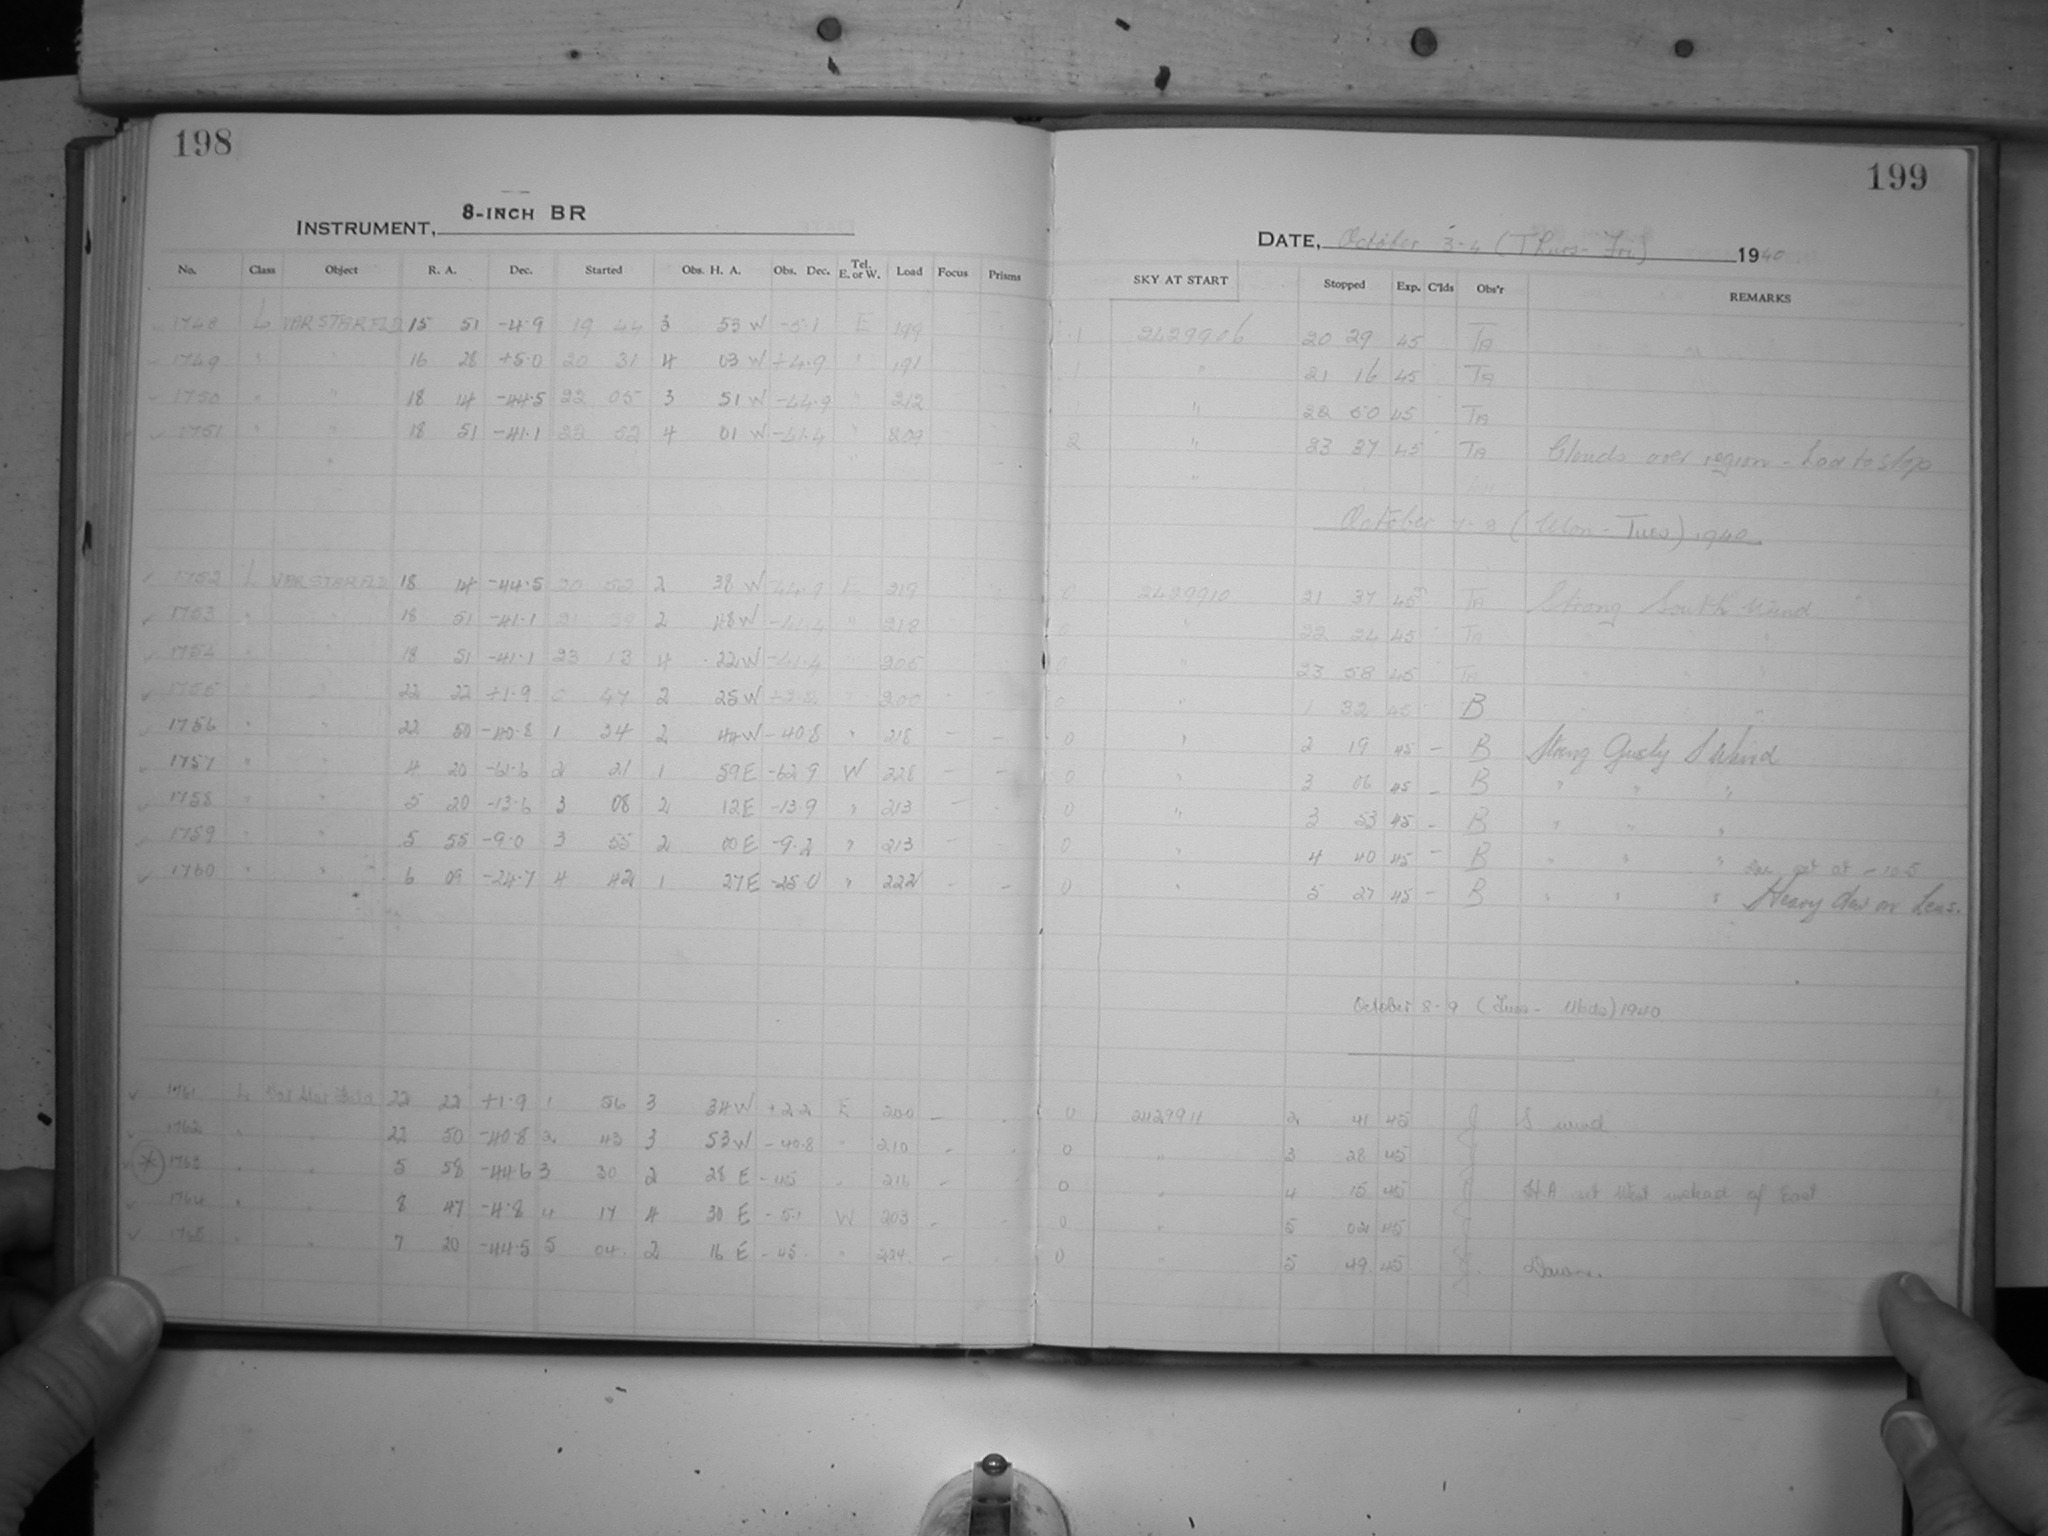 198
8-INCH BR
INSTRUMENT,
No. Class Object R. A. Dec. Started Obs. H. A. Obs. Dec. Tel. E. or W. Load Focus Prisms
1748 L VAR STAR FLD 15 51 -4.9 19 44 3 53 W -5.1 E 199
1749 " " 16 28 +5.0 20 31 4 03 W +4.9 " 191
1750 " " 18 14 -44.5 22 05 3 51 W -44.9 " 212
1751 " " 18 51 -41.1 23 52 4 01 W -41.4 " 209
1752 L VAR STAR FLD 18 14 -44.5 20 52 2 38 W -44.9 E 219
1753 " " 18 51 -41.1 21 39 2 48 W -41.4 " 218
1754 " " 18 51 -41.1 23 13 4 22 W -41.4 " 205
1755 " " 22 22 +1.9 0 47 2 25 W +2.2 " 200
1756 " " 22 50 -40.8 1 34 2 44 W -40.8 " 218 - -
1757 " " 4 20 -61.6 2 21 1 59 E -62 9 W 228 - -
1758 " " 5 20 -13.6 3 08 2 12 E -13.9 " 213 -
1759 " " 5 55 -9.0 3 55 2 00 E -9.2 " 213 -
1760 " " 6 09 -24.7 4 42 1 27 E -25.0 " 222 - -
1761 L Var Star Field 22 22 +1.9 1 56 3 34 W +2.2 E 200 -
1762 " " 22 50 -40.8 2 43 3 53 W -40.8 " 210 -
* 1763 " " 5 58 -44.6 3 30 2 28 E -45 " 216 -
1764 " " 8 47 -4.8 4 17 4 30 E -5.1 W 203 -
1765 " " 7 20 -44.5 5 04 2 16 E -45 " 224 -
199
DATE, October 3-4 (Thurs-Fri) 1940
SKY AT START Stopped Exp. C'lds Obs'r REMARKS
1 2429906 20 29 45 TA
1 " 21 16 45 TA
" 22 50 45 TA
2 " 23 37 45 TA Clouds over region - had to stop
October 7-8 (Mon-Tues) 1940
0 2429910 21 37 45 TA Strong South Wind
0 " 22 24 45 TA
0 " 23 58 45 TA
0 " 1 32 45 B
0 " 2 19 45 - B Strong Gusty S Wind
0 " 3 06 45 - B " " "
0 " 3 53 45 - B " " "
0 " 4 40 45 - B " " " Dec set at -10.5
0 " 5 27 45 - B " " " Heavy dew on Lens.
October 8-9 (Tues- Weds) 1940
0 2429911 2 41 45 J S wind
0 " 3 28 45 J
0 " 4 15 45 J H.A set West instead of East
0 " 5 02 45 J
0 " 5 49 45 J. Dawn.